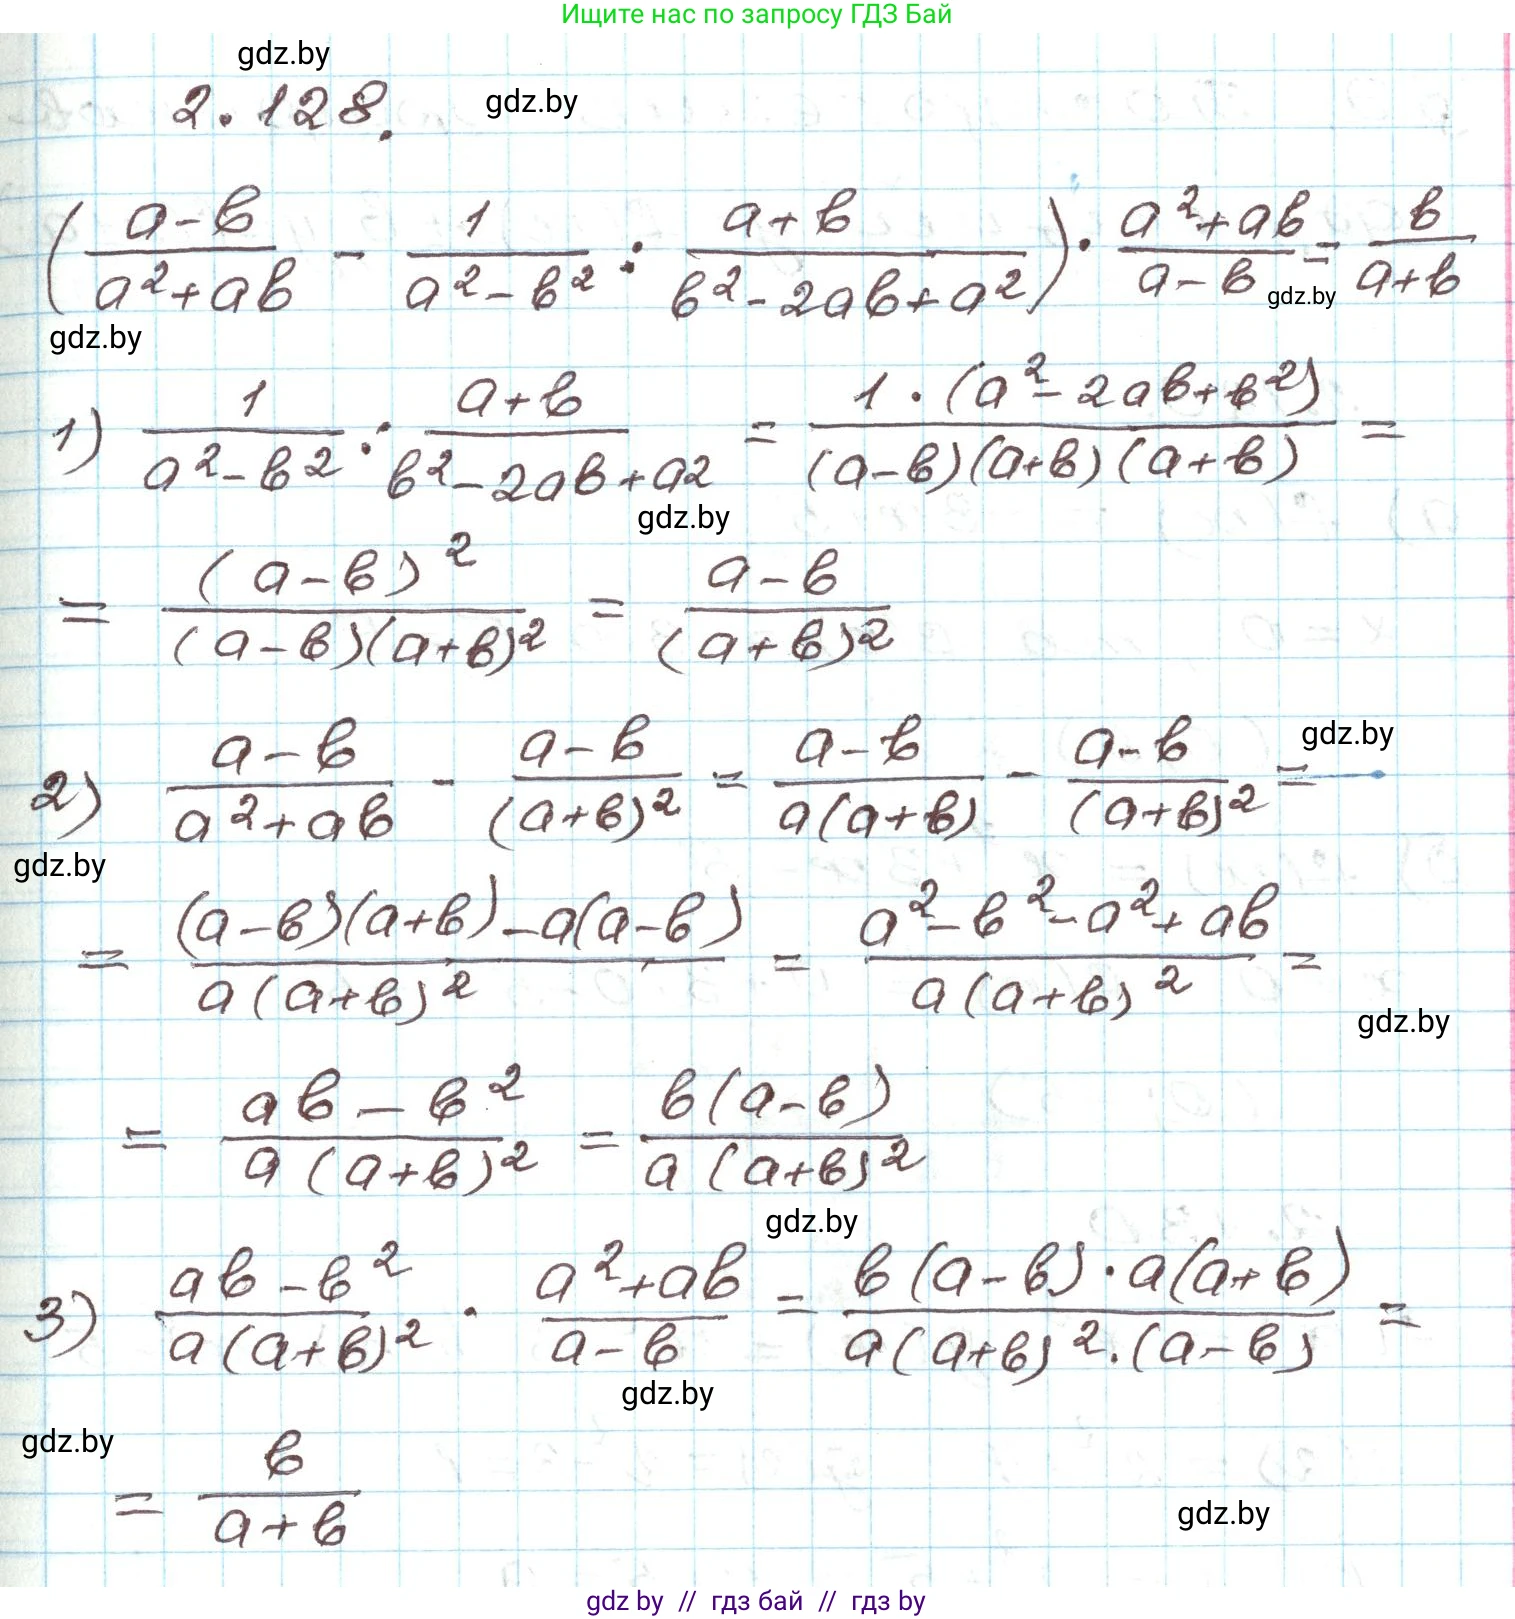 Ищите нас по запросу ГДЗ Бай
gdz.by
2.128.
gdz.by
(a-b/a²+ab - 1/a²-b² : a+b/b²-2ab+a²) · a²+ab/a-b = b/a+b
gdz.by
gdz.by
1) 1/a²-b² : a+b/b²-2ab+a2 = 1·(a²-2ab+b²)/(a-b)(a+b)(a+b) =
gdz.by
= (a-b)²/(a-b)(a+b)² = a-b/(a+b)²
gdz.by
2) a-b/a²+ab - a-b/(a+b)² = a-b/a(a+b) - a-b/(a+b)² =
gdz.by
= (a-b)(a+b)-a(a-b)/a(a+b)² = a²-b²-a²+ab/a(a+b)² =
gdz.by
= ab-b²/a(a+b)² = b(a-b)/a(a+b)²
gdz.by
3) ab-b²/a(a+b)² · a²+ab/a-b = b(a-b)·a(a+b)/a(a+b)²·(a-b) =
gdz.by
gdz.by
= b/a+b
gdz.by
gdz by // гдз бай // gdz by